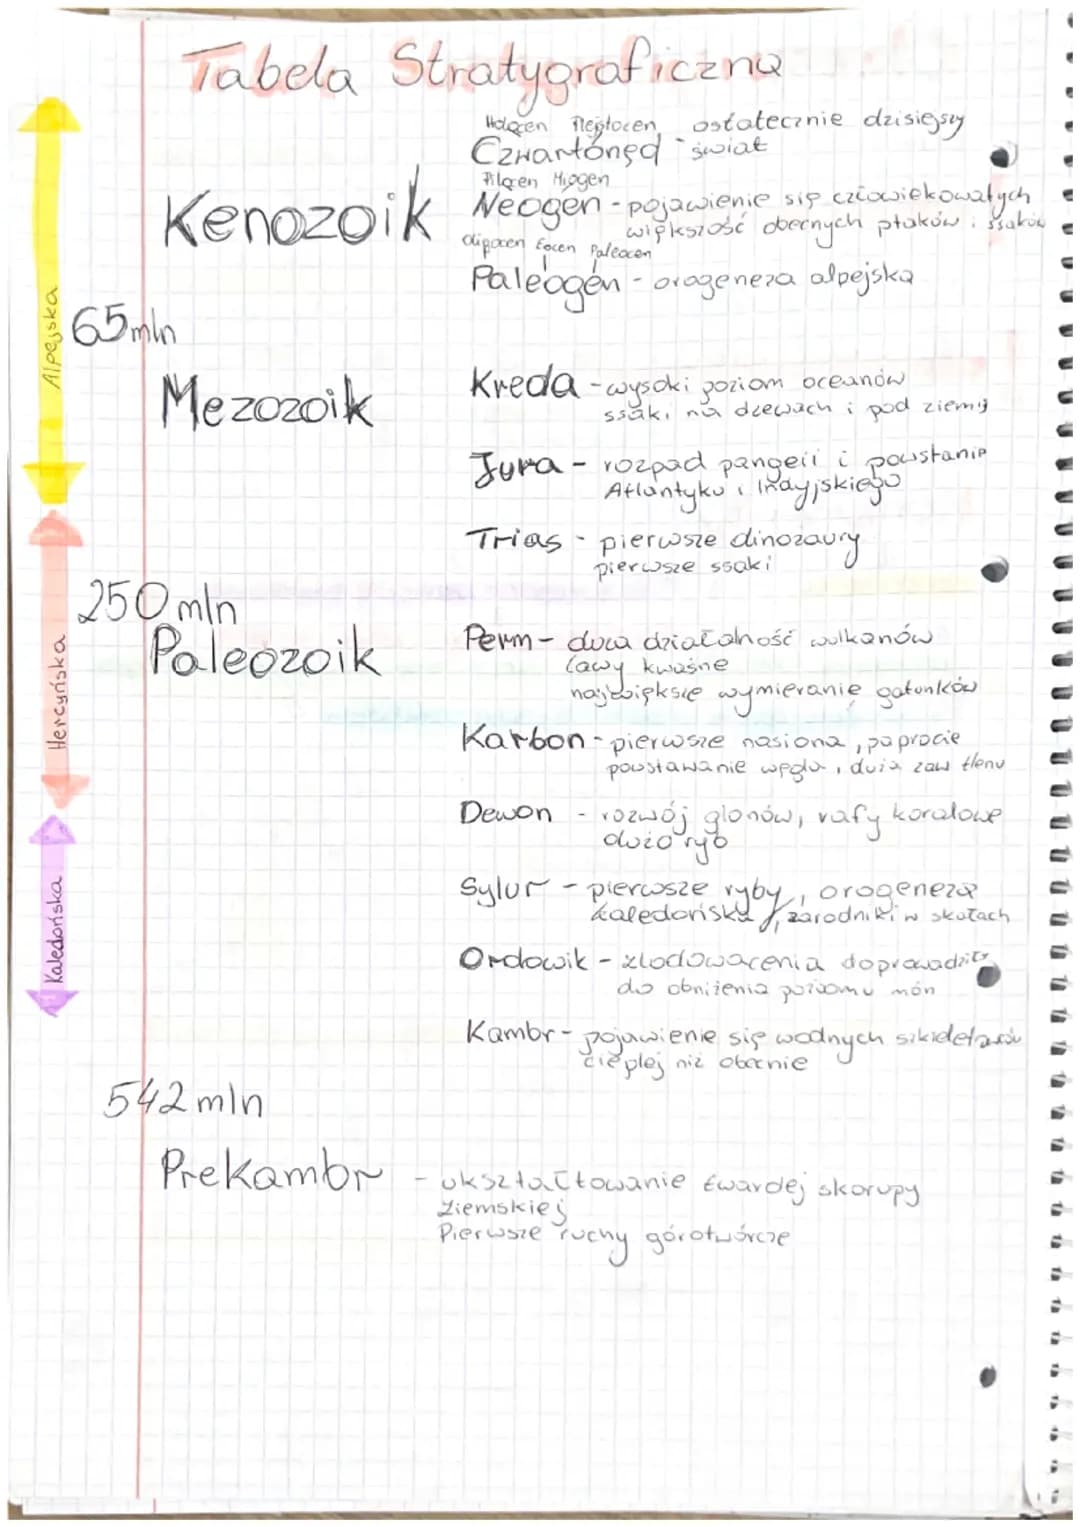 Tabela Stratygraficzna
Holocen Plejstocen
Czwartorzęd - ostatecznie dzisiejszy
świat
Kenozoik
Pilocen Miogen
Neogen - pojawienie się człowiekowatych
większość obecnych ptaków i ssaków
Oligocen Eocen Paleocen
Paleogen - orogeneza alpejska
Alpejska
65 mln
Mezozoik
Kreda - wysoki poziom oceanów
ssaki na dzewach i pod ziemią
Jura - rozpad pangeii i powstanie
Atlantyku i Indyjskiego
Trias - pierwsze dinozaury
pierwsze ssaki
250 mln
Paleozoik
Hercyńska
Perm - duża działalność wulkanów
lawy kwaśne
największe wymieranie gatunków
Karbon - pierwsze nasiona, paprocie
powstawanie węgla, duża zaw tlenu
Dewon - rozwój glonów, rafy koralowe
dużo ryb
Sylur - pierwsze ryby, orogeneza
kaledońska, zarodniki w skałach
Kaledońska
Ordowik - zlodowacenia doprowadziły
do obniżenia poziomu mórz
Kambr - pojawienie się wodnych szkieletowców
cieplej niż obecnie
542 mln
Prekambr - ukształtowanie twardej skorupy
ziemskiej
Pierwsze ruchy górotwórcze